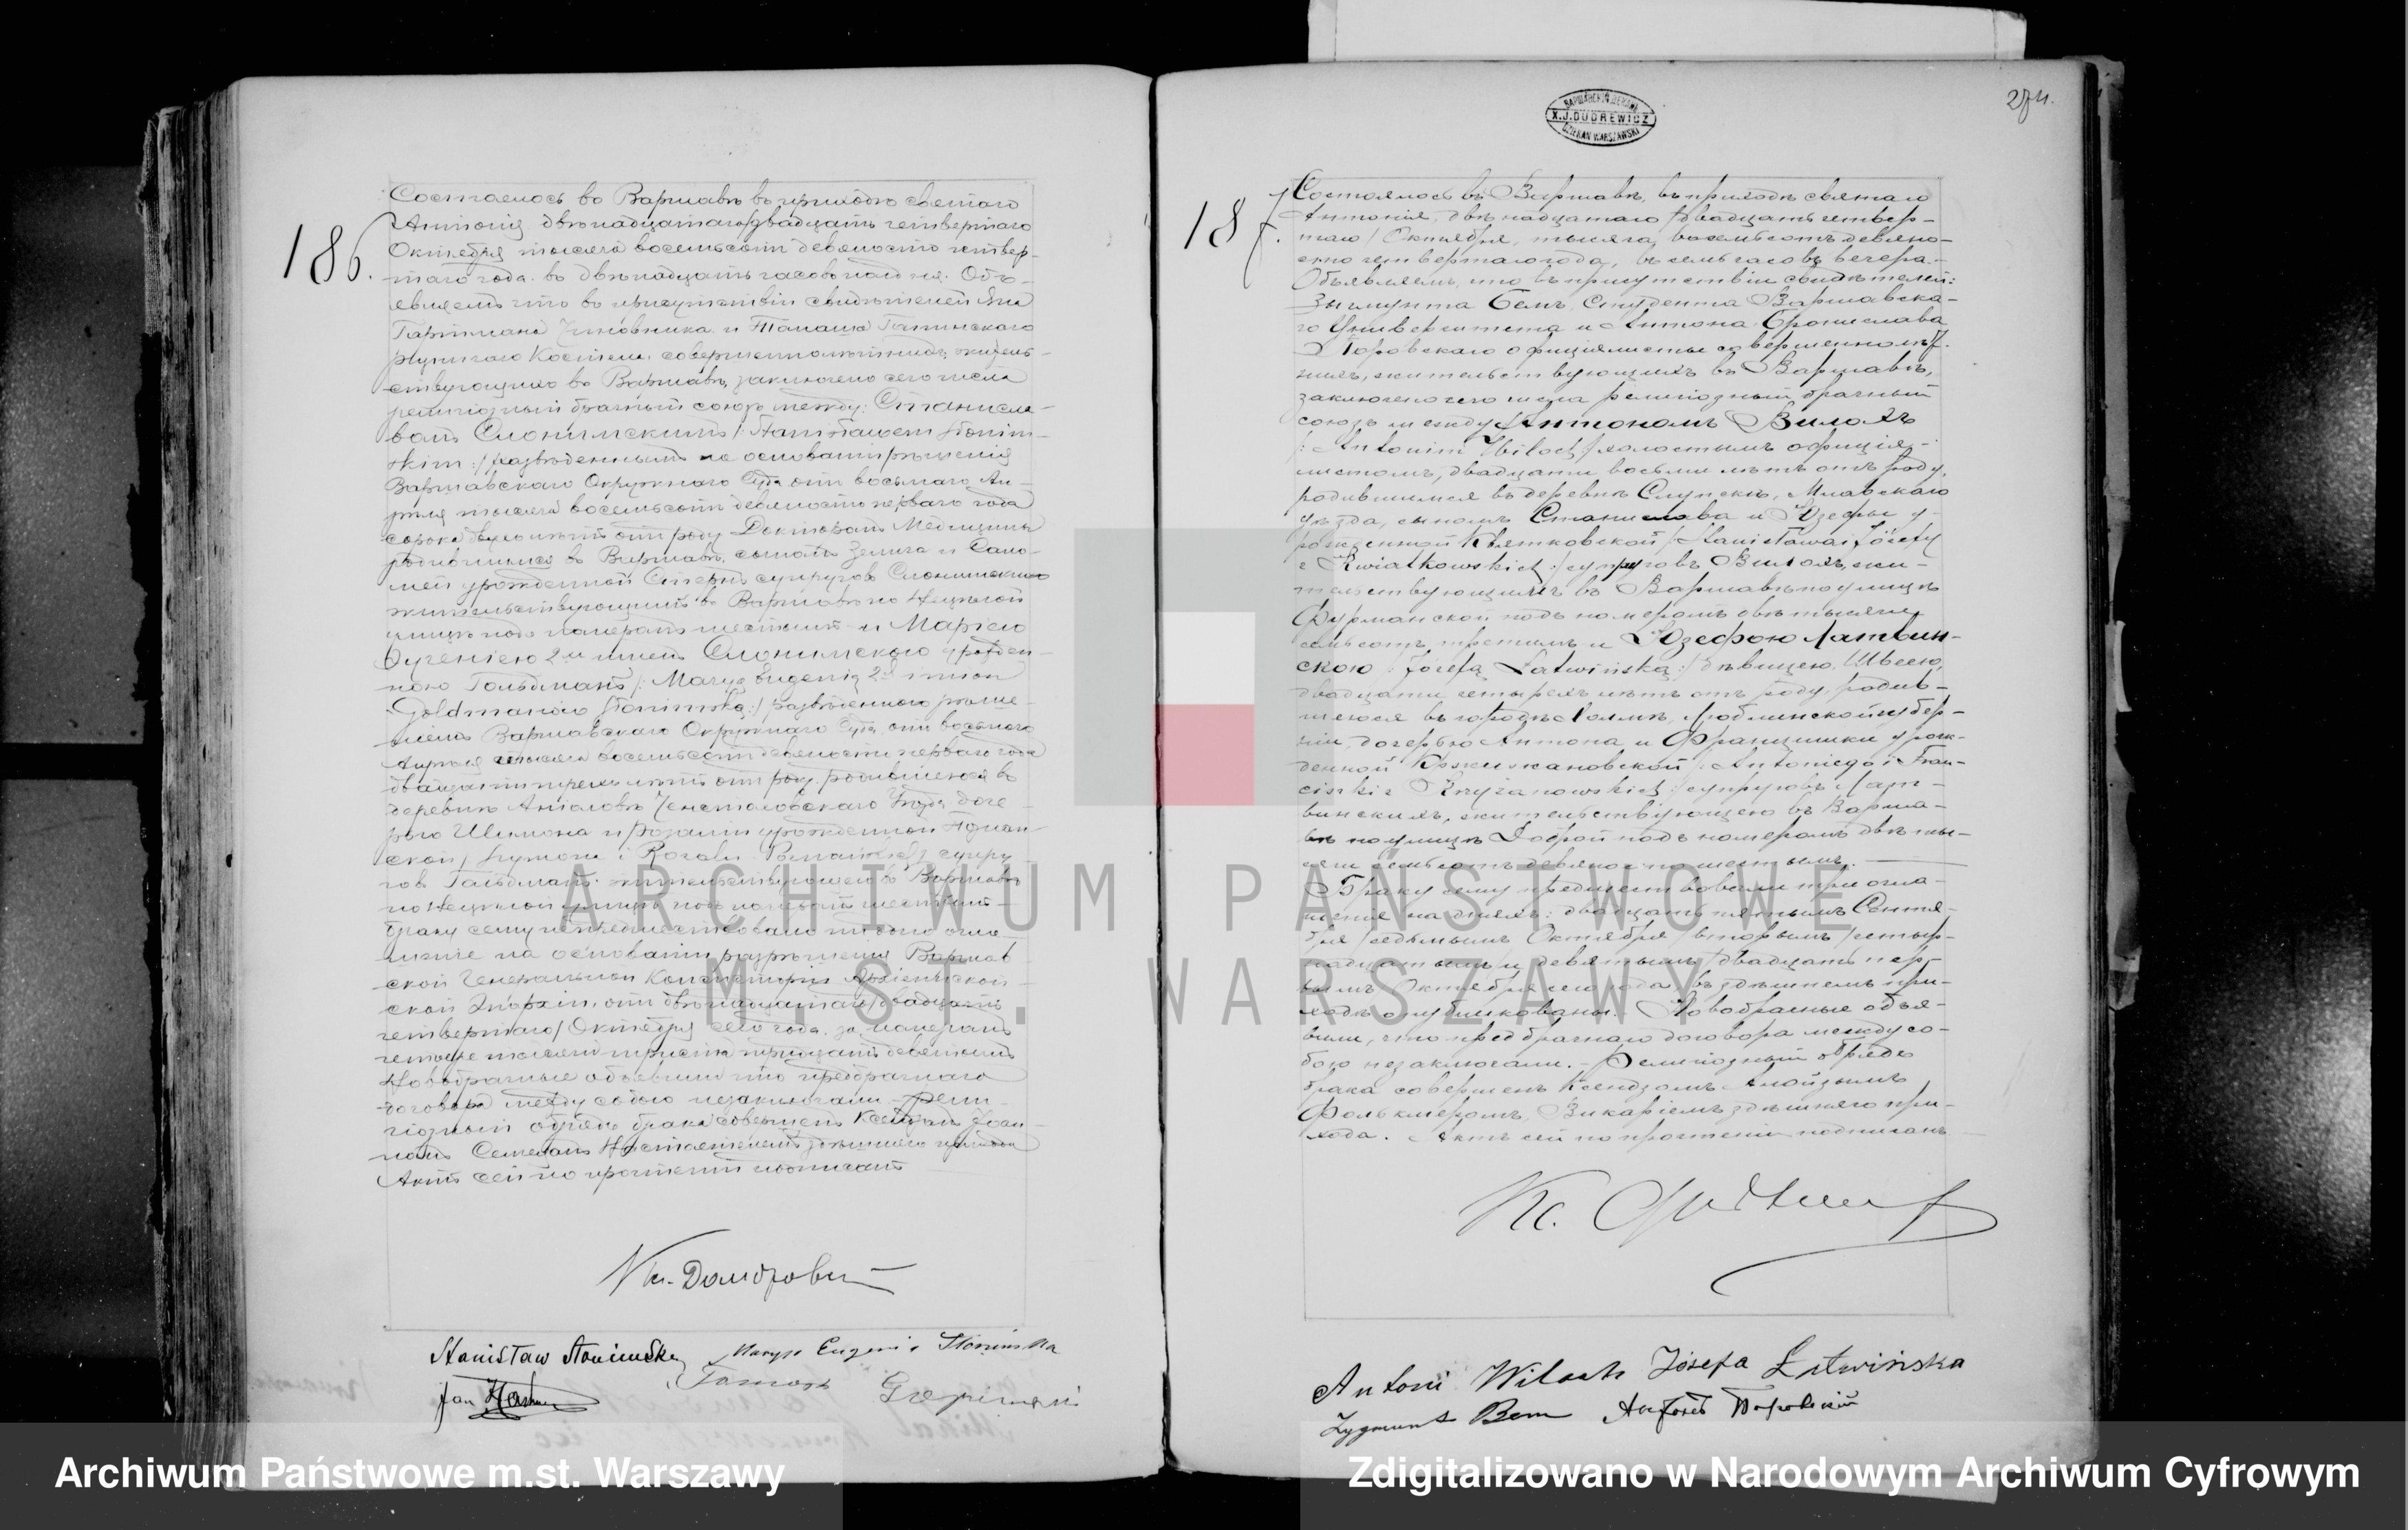 274.
ВАРШАВСКІЙ ДЕКАНЪ
X. J. DUDREWICZ
DZIEKAN WARSZAWSKI
186.
Состоялось въ Варшавѣ въ приходѣ святаго
Антонія двѣнадцатаго/двадцать четвертаго
Октября тысяча восемьсотъ девяносто четвер-
таго года въ двѣнадцать часовъ полдня. Объ-
являемъ что въ присутствіи свидѣтелей Яна
Гартмана Чиновника и Томаша
совершеннолѣтнихъ житель-
ствующихъ въ Варшавѣ, заключено сего числа
религіозный брачный союзъ между: Станисла-
вомъ Слонимскимъ /: Stanisławem Słonim-
skim :/ разведеннымъ на основаніи рѣшенія
Варшавскаго Окружнаго Суда отъ восьмаго Ап-
рѣля тысяча восемьсотъ девяносто перваго года
сорока двухъ лѣтъ отъ роду Докторомъ Медицины
родившимся въ Варшавѣ, сыномъ Зелига и Сало-
меи урожденной супруговъ Слонимскихъ
жительствующимъ въ Варшавѣ по Нецѣлой
улицѣ подъ номеромъ шестымъ и Маріею
Евгеніею 2хъ именъ Слонимскою урожден-
ною Гольдманъ /: Maryą Eugenią 2ch imion
Goldmanów Słonimską :/ разведенною рѣше-
ніемъ Варшавскаго Окружнаго Суда отъ восьмаго
Апрѣля тысяча восемьсотъ девяносто перваго года
двадцати трехъ лѣтъ отъ роду, родившеюся въ
деревнѣ Ченстоховскаго Уѣзда доче-
рью Шимона и Розаліи урожденной Познан-
ской / Szymona i Rozalii Poznańskich / супру-
говъ Гольдманъ жительствующею въ Варшавѣ
по Нецѣлой улицѣ подъ номеромъ шестымъ
Браку сему не предшествовало ни одно огла-
шеніе на основаніи разрѣшенія Варшав-
ской Генеральной Консисторіи Архіепископ-
ской Епархіи отъ двѣнадцатаго/двадцать
четвертаго/ Октября сего года за номеромъ
четыре тысячи триста тридцать девятымъ
Новобрачные объявили что предбрачнаго
договора между собою незаключали. Рели-
гіозный обрядъ брака совершенъ Ксендзомъ Іоан-
номъ Семецомъ Настоятелемъ здѣшняго прихода
Актъ сей по прочтеніи подписанъ
Stanisław Słonimski Marya Eugenia Słonimska
Jan Tomasz
187.
Состоялось въ Варшавѣ, въ приходѣ святаго
Антонія, двѣнадцатаго /двадцать четвер-
таго/ Октября, тысяча восемьсотъ девяно-
сто четвертаго года, въ семь часовъ вечера.-
Объявляемъ, что въ присутствіи свидѣтелей:
Зыгмунта Бемъ, Студента Варшавска-
го Университета и Антона Бронислава
Торовскаго оффиціялисты совершеннолѣт-
нихъ, жительствующихъ въ Варшавѣ,
заключено сего числа религіозный брачный
союзъ между Антономъ Вилохъ
/: Antonim Wiloch / холостымъ оффиція-
листомъ, двадцати восьми лѣтъ отъ роду,
родившимся въ деревнѣ Слупскѣ, Млавскаго
уѣзда, сыномъ Станислава и Юзефы у-
рожденной Квятковской /: Stanisława i Józefy
z Kwiatkowskich :/ супруговъ Вилохъ, жи-
тельствующимъ въ Варшавѣ по улицѣ
Фурманской подъ номеромъ двѣ тысячи
семьсотъ третьимъ и Юзефою Латвин-
скою /: Józefą Łatwińską :/ дѣвицею, Швеею,
двадцати четырехъ лѣтъ отъ роду, родив-
шеюся въ городѣ Холмѣ, Люблинской губер-
ніи, дочерью Антона и Францишки урож-
денной Кржижановской /: Antoniego i Fran-
ciszki z Krzyżanowskich :/ супруговъ Лат-
винскихъ, жительствующею въ Варша-
вѣ по улицѣ Доброй подъ номеромъ двѣ ты-
сячи семьсотъ девяносто шестымъ.
Браку сему предшествовали три огла-
шенія на дняхъ: двадцать пятымъ Сентя-
бря /седьмымъ Октября/ вторымъ /четыр-
надцатымъ и девятымъ /двадцать пер-
вымъ Октября сего года, въ здѣшнемъ при-
ходѣ опубликованы.- Новобрачные объя-
вили, что предбрачнаго договора между со-
бою незаключали.- Религіозный обрядъ
брака совершенъ Ксендзомъ Алойзымъ
Фолькмеромъ, Викаріемъ здѣшняго при-
хода. Актъ сей по прочтеніи подписанъ
Antoni Wiloch Józefa Łatwińska
Zygmunt Bem Антонъ Торовскій
ARCHIWUM PAŃSTWOWE
M.ST. WARSZAWY
Archiwum Państwowe m.st. Warszawy
Zdigitalizowano w Narodowym Archiwum Cyfrowym